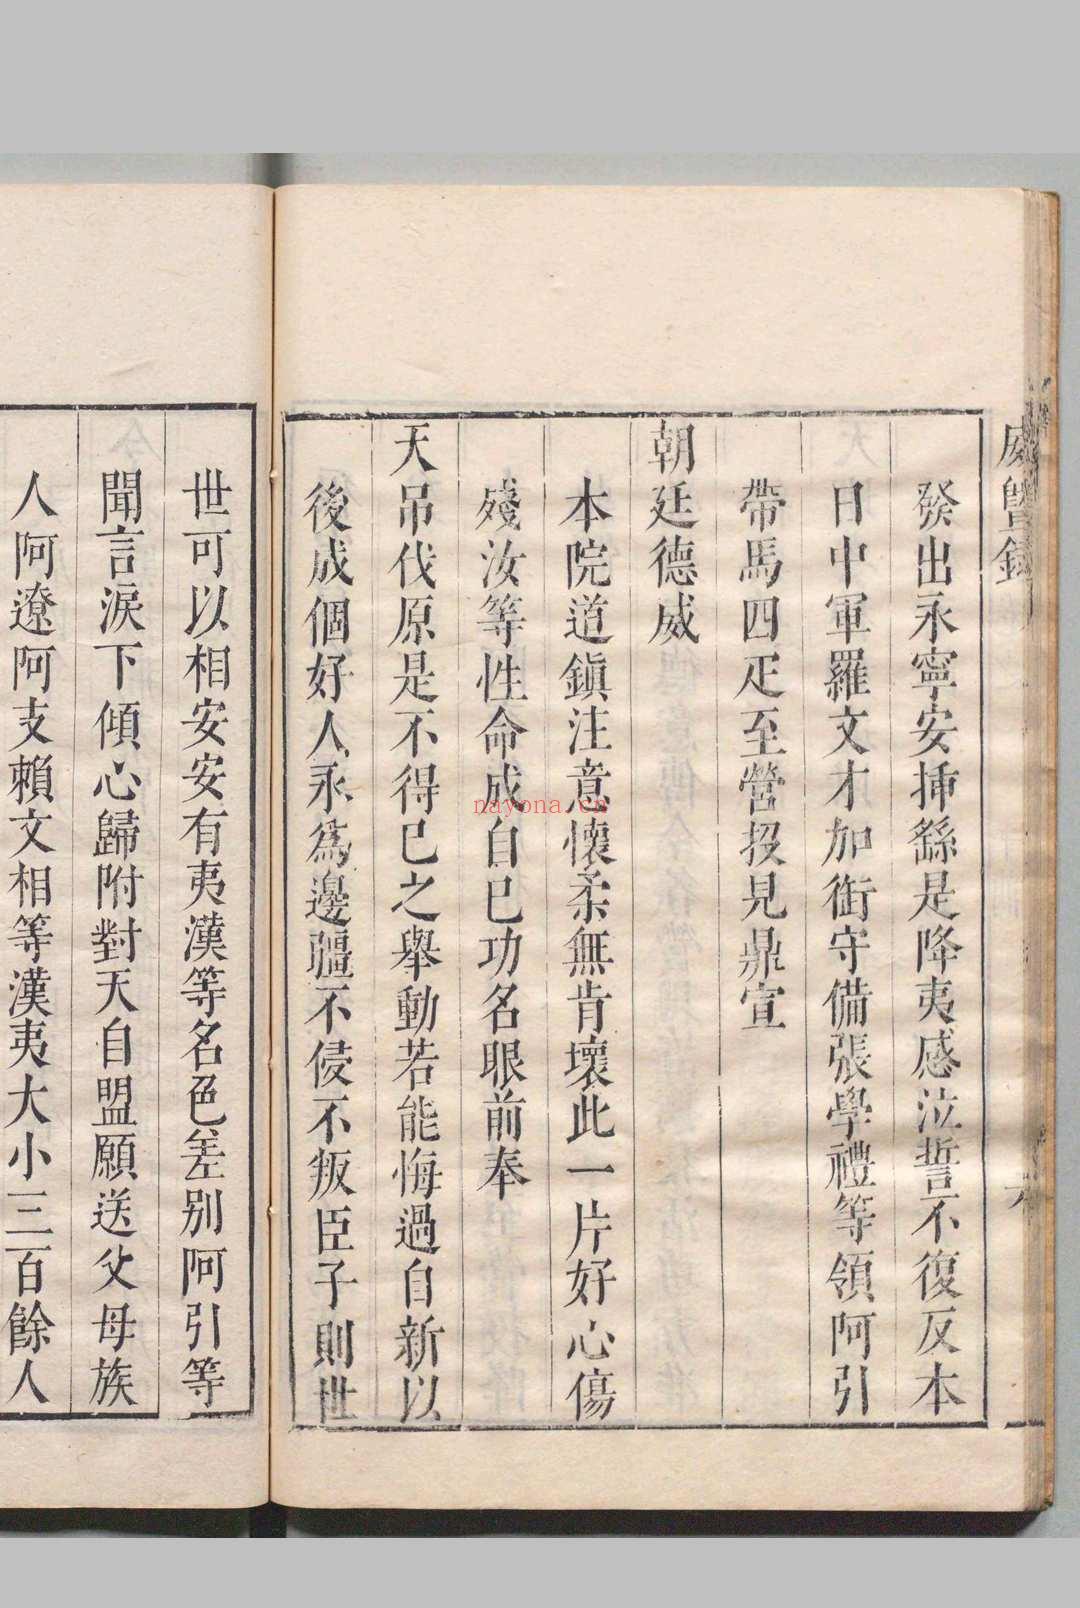 發出永寧安揷繇是降夷感泣誓不復反本
日中軍羅文才加銜守備張學禮等領阿引
帶馬四疋至營投見鼎宣
朝廷德威
本院道鎭注意懷柔無肯壞此一片好心傷
殘汝等性命成自巳功名眼前奉
天吊伐原是不得巳之舉動若能悔過自新以
後成個好人永爲邊疆不侵不叛臣子則世
世可以相安安有夷漢等名色差別阿引等
聞言淚下傾心歸附對天自盟願送父母族
人阿遼阿支賴文相等漢夷大小三百餘人
nayona.cn